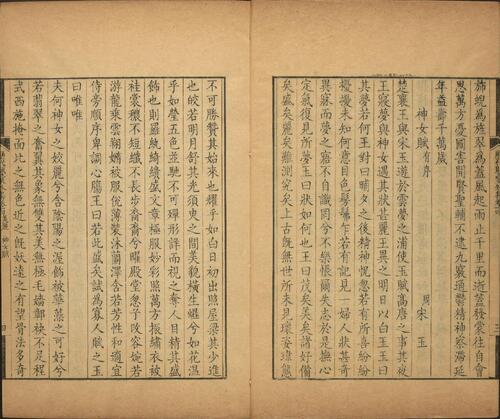 旆蜺為旌翠為蓋風起雨止千里而逝蓋發蒙往自會
思萬方憂國害開賢聖輔不逮九竅通鬱精神察滯延
年益壽千萬歲
神女賦有序 周宋玉
楚襄王與宋玉遊於雲夢之浦使玉賦高唐之事其夜
王寢夢與神女遇其狀甚麗王異之明日以白玉玉曰
其夢若何王對曰晡夕之後精神怳忽若有所喜紛紛
擾擾未知何意目色髣髴乍若有記見一婦人狀甚奇
異寐而夢之寤不自識罔兮不樂悵爾失志於是撫心
定氣復見所夢玉曰狀如何也王曰茂矣美矣諸好備
矣盛矣麗矣難測究矣上古既無世所未見瓌姿瑋態
不可勝贊其始來也耀乎如白日初出照屋梁其少進
也皎若明月舒其光須臾之間美貌橫生曄兮如花溫
乎如瑩五色並馳不可殫形詳而視之奪人目精其盛
飾也則羅紈綺繢盛文章極服妙彩照萬方振繡衣被
袿裳穠不短纖不長步裔裔兮曜殿堂忽兮改容婉若
游龍乘雲翔嫷被服侻薄裝沐蘭澤含若芳性和適宜
侍旁順序卑調心腸王曰若此盛矣試為寡人賦之玉
曰唯唯
夫何神女之姣麗兮含陰陽之渥飾被華藻之可好兮
若翡翠之奮翼其象無雙其美無極毛嬙鄣袂不足程
式西施掩面比之無色近之既妖遠之有望骨法多奇
神女賦
四